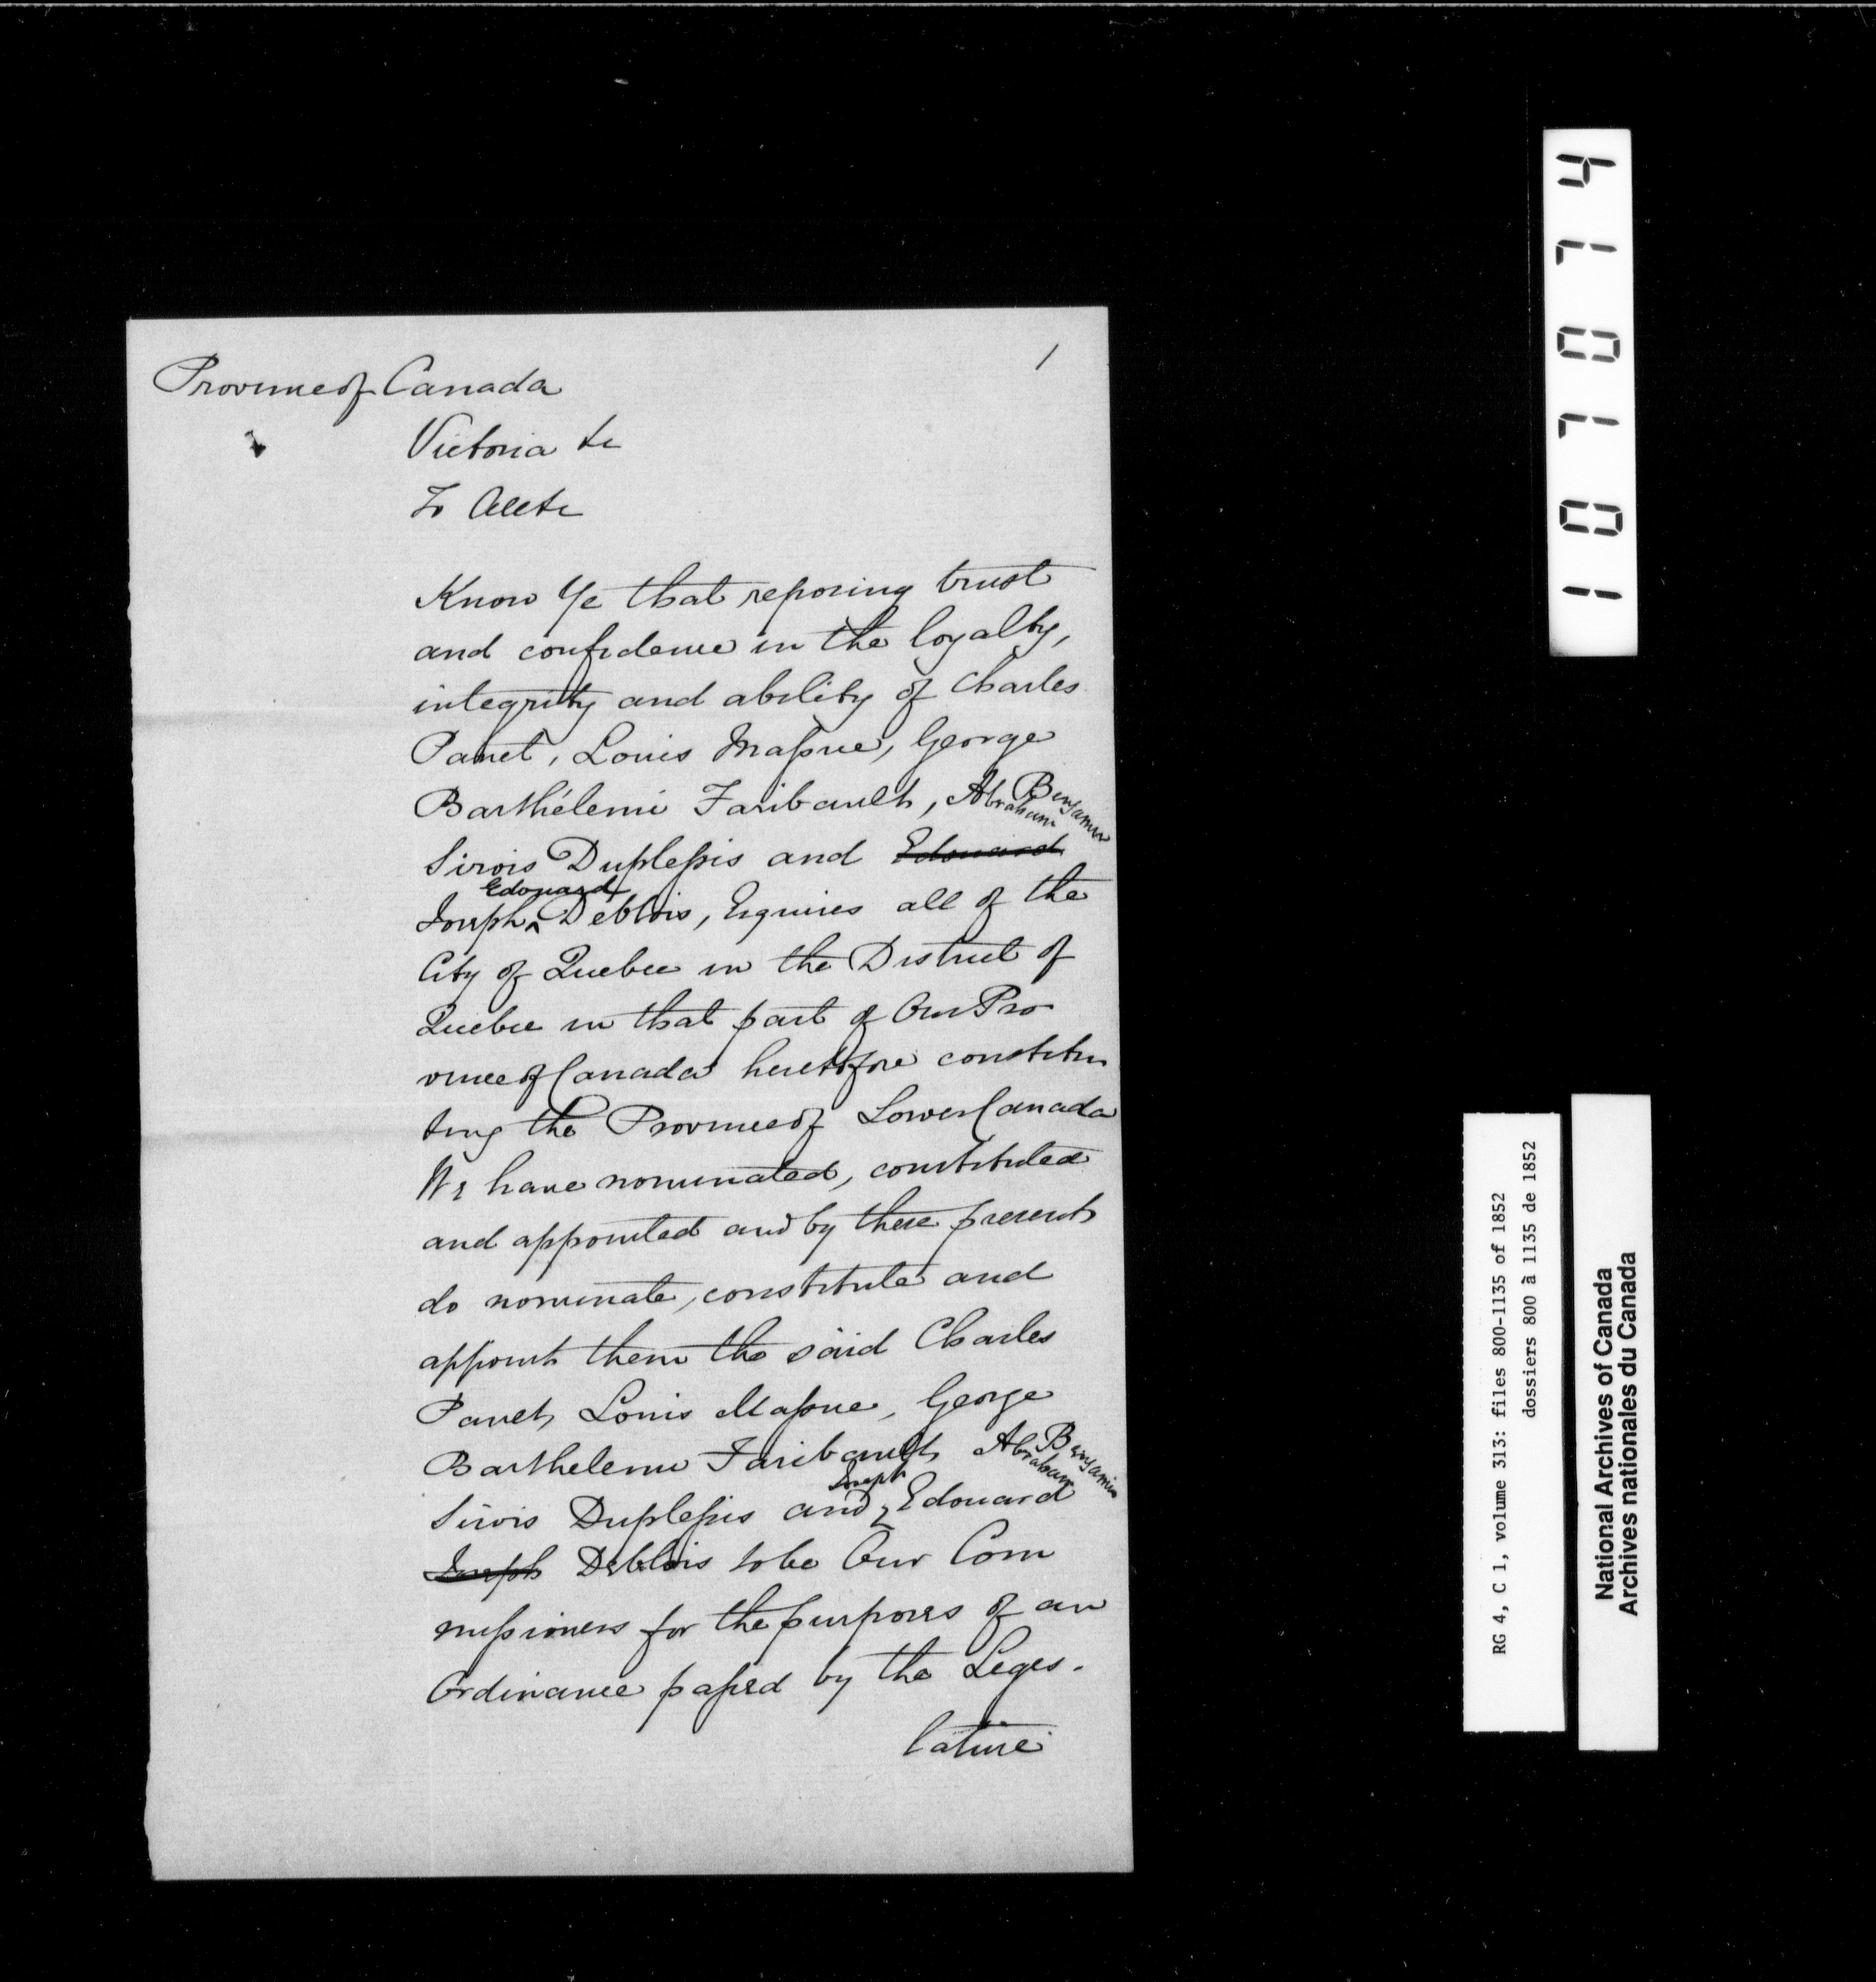 1
Province of Canada
Victoria &c
To all &c
Know Ye that reposing trust
and confidence in the loyalty,
integrity and ability of Charles
Panet, Louis Massue, George
Barthélemi Faribault, Abraham Benjamin
Sirois Duplessis and Edouard
Joseph ^ Edouard Deblois, Esquires all of the
City of Quebec in the District of
Quebec in that part of Our Pro
vince of Canada heretofore constitu
ting the Province of Lower Canada
We have nominated, constituted
and appointed and by these presents
do nominate, constitute and
appoint them the said Charles
Panet, Louis Massue, George
Barthelemi Faribault Abraham Benjamin
Sirois Duplessis and Joseph Edouard
Joseph Deblois to be Our Com
missioners for the purposes of an
Ordinance passed by the Legis-
lature
107074
RG 4, C 1, volume 313: files 800-1135 of 1852
dossiers 800 à 1135 de 1852
National Archives of Canada
Archives nationales du Canada